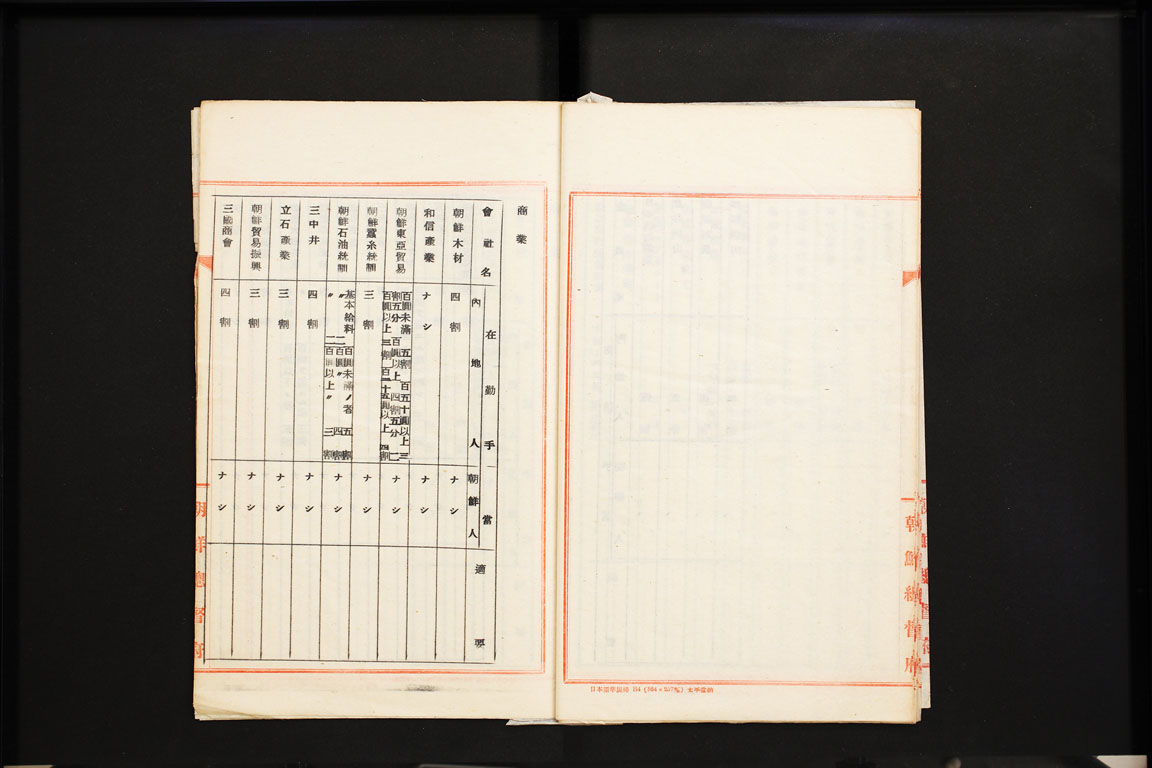 日本標準規格 B4 (364×257㎜) 太平堂納
朝鮮總督府
商業
會社名
在勤手當
內地人
朝鮮人
適要
朝鮮木材 四割 ナシ
和信產業 ナシ ナシ
朝鮮東亞貿易 百圓未滿 五割 百五十圓以上 三
割五分 百圓以上 四割五分 二
百圓以上 三割 百二十五圓以上 四割 ナシ
朝鮮蠶糸統制 三割 ナシ
朝鮮石油統制 基本給料 百圓未滿ノ者 五割
〃 二百圓〃 四割
〃 二百圓以上〃 三割 ナシ
三中井 四割 ナシ
立石產業 三割 ナシ
朝鮮貿易振興 三割 ナシ
三國商會 四割 ナシ
朝鮮總督府